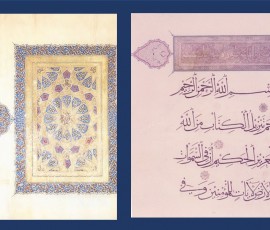 بسم الله الرحمن الرحيم
حم تنزيل الكتاب من الله
العزيز الحكيم ان في السموات
والارض لايات للمؤمنين وفي